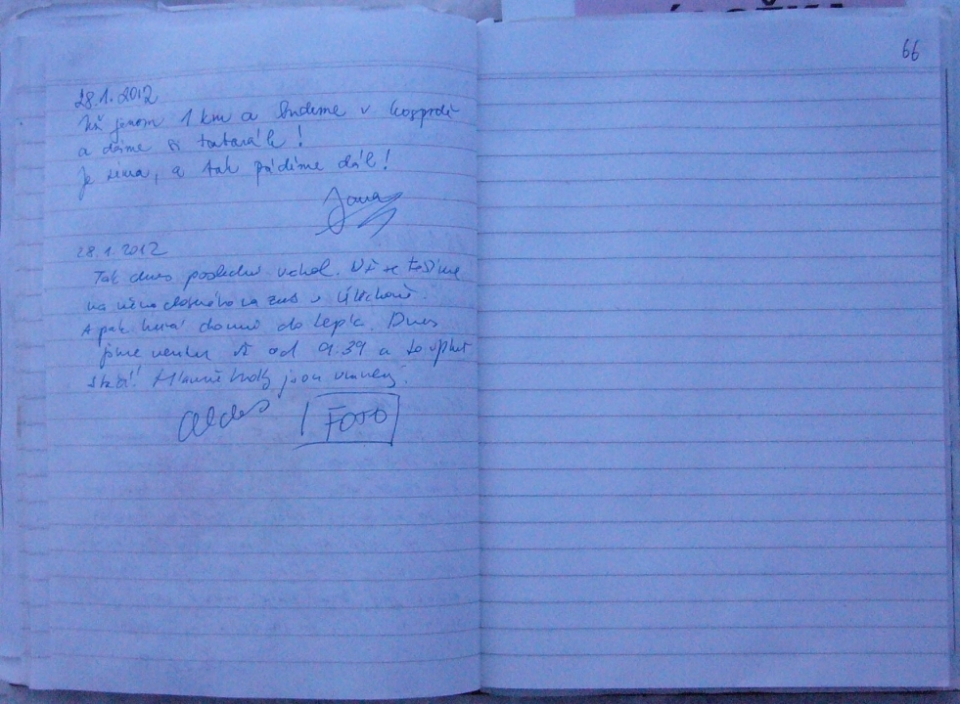 66
28.1.2012
Už jenom 1 km a budeme v hospodě
a dáme si tatarák!
Je zima, a tak pádíme dál!
Jana
28.1.2012
Tak dnes poslední vrchol. Už se těšíme
na něco
A pak hurá domů do tepla. Dnes
jsme venku již od 9.39 a to úplně
stačí! Hlavně jsou
FOTO